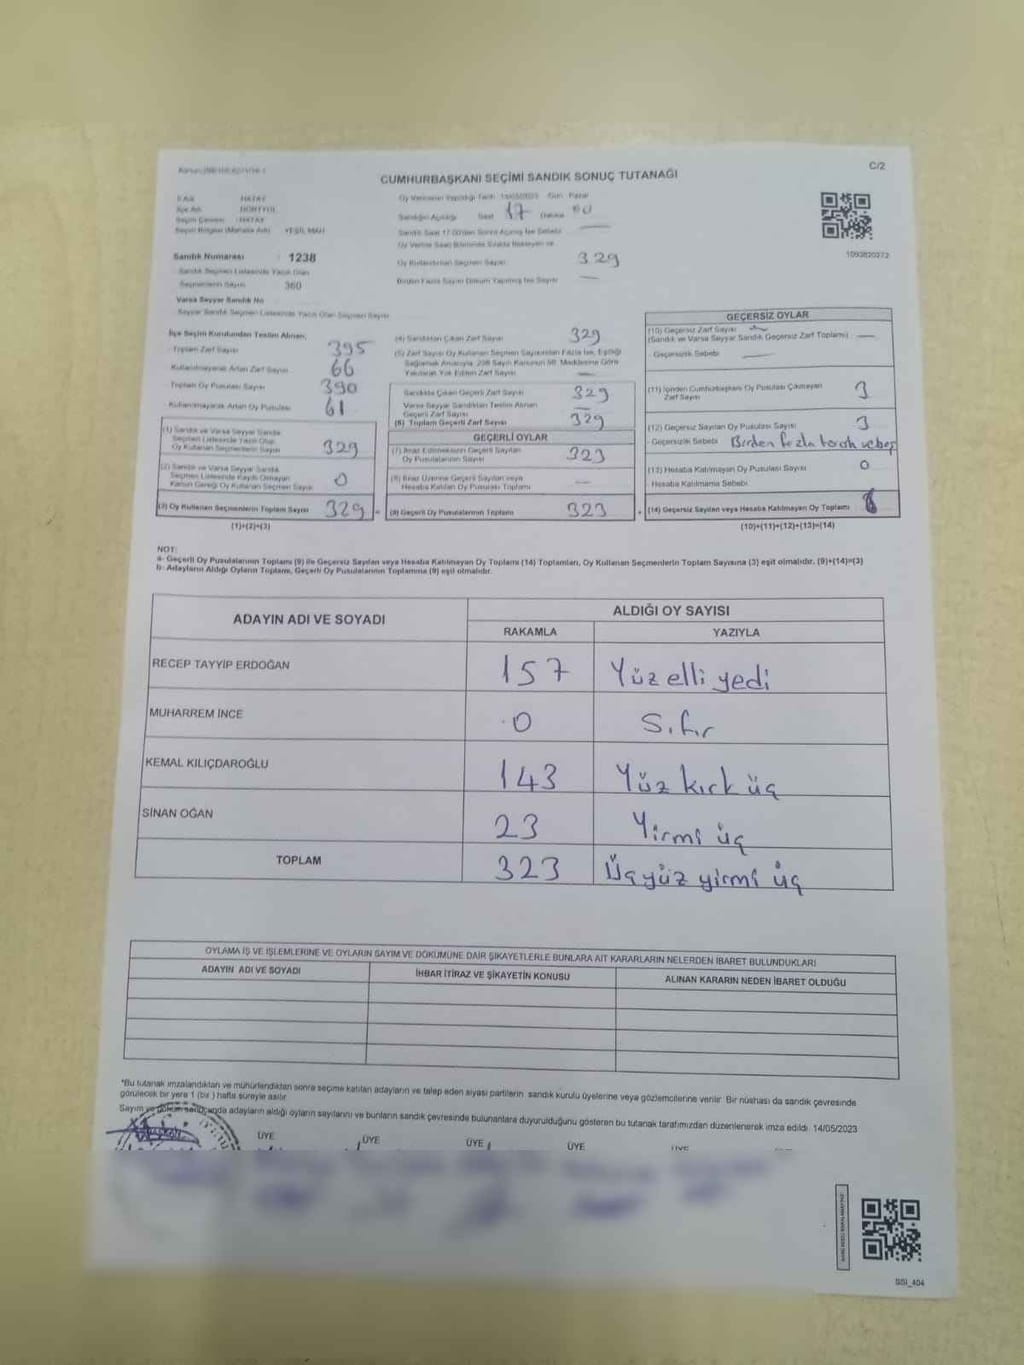 C/2
CUMHURBAŞKANI SEÇİMİ SANDIK SONUÇ TUTANAĞI
HATAY
Sandığın Açıldığı Saat 17
YEŞİL MAH
Sandık Numarası 1238
1093820272
Oy Kullandırılan Seçmen Sayısı 329
360
Varsa Seyyar Sandık No
İlçe Seçim Kurulundan Teslim Alınan,
Toplam Zarf Sayısı 395
Kullanılmayarak Artan Zarf Sayısı 66
Toplam Oy Pusulası Sayısı 390
Kullanılmayarak Artan Oy Pusulası 61
(1) Sandık ve Varsa Seyyar Sandık
Seçmen Listesinde Yazılı Olup
Oy Kullanan Seçmenlerin Sayısı 329
(2) Sandık ve Varsa Seyyar Sandık
Seçmen Listesinde Kaydı Olmayan
Kanun Gereği Oy Kullanan Seçmen Sayısı 0
(3) Oy Kullanan Seçmenlerin Toplam Sayısı 329
(1)+(2)=(3)
(4) Sandıktan Çıkan Zarf Sayısı 329
Sandıkta Çıkan Geçerli Zarf Sayısı 329
Varsa Seyyar Sandıktan Teslim Alınan
Geçerli Zarf Sayısı
(6) Toplam Geçerli Zarf Sayısı 329
GEÇERLİ OYLAR
(7) İtiraz Edilmeksizin Geçerli Sayılan
Oy Pusulalarının Sayısı 323
(8) İtiraz Üzerine Geçerli Sayılan veya
Hesaba Katılan Oy Pusulası Toplamı
(9) Geçerli Oy Pusulalarının Toplamı 323
GEÇERSİZ OYLAR
(10) Geçersiz Zarf Sayısı
(Sandık ve Varsa Seyyar Sandık Geçersiz Zarf Toplamı)
Geçersizlik Sebebi
(11) İçinden Cumhurbaşkanı Oy Pusulası Çıkmayan
Zarf Sayısı 3
(12) Geçersiz Sayılan Oy Pusulası Sayısı 3
Geçersizlik Sebebi Birden fazla
(13) Hesaba Katılmayan Oy Pusulası Sayısı 0
Hesaba Katılmama Sebebi
(14) Geçersiz Sayılan veya Hesaba Katılmayan Oy Toplamı
(10)+(11)+(12)+(13)=(14)
NOT:
a- Geçerli Oy Pusulalarının Toplamı (9) ile Geçersiz Sayılan veya Hesaba Katılmayan Oy Toplamı (14) Toplamları, Oy Kullanan Seçmenlerin Toplam Sayısına (3) eşit olmalıdır. (9)+(14)=(3)
b- Adayların Aldığı Oyların Toplamı, Geçerli Oy Pusulalarının Toplamına (9) eşit olmalıdır.
ADAYIN ADI VE SOYADI
ALDIĞI OY SAYISI
RAKAMLA YAZIYLA
RECEP TAYYİP ERDOĞAN 157 Yüz elli yedi
MUHARREM İNCE 0 Sıfır
KEMAL KILIÇDAROĞLU 143 Yüz kırk üç
SİNAN OĞAN 23 Yirmi üç
TOPLAM 323 Üçyüz yirmi üç
OYLAMA İŞ VE İŞLEMLERİNE VE OYLARIN SAYIM VE DÖKÜMÜNE DAİR ŞİKAYETLERLE BUNLARA AİT KARARLARIN NELERDEN İBARET BULUNDUKLARI
ADAYIN ADI VE SOYADI İHBAR İTİRAZ VE ŞİKAYETİN KONUSU ALINAN KARARIN NEDEN İBARET OLDUĞU
*Bu tutanak imzalandıktan ve mühürlendikten sonra seçime katılan adayların ve talep eden siyasi partilerin sandık kurulu üyelerine veya gözlemcilerine verilir. Bir nüshası da sandık çevresinde
görülecek bir yere 1 (bir) hafta süreyle asılır.
Sayım ve döküm sonucunda adayların aldığı oyların sayılarını ve bunların sandık çevresinde bulunanlara duyurulduğunu gösteren bu tutanak tarafımızdan düzenlenerek imza edildi. 14/05/2023
ÜYE ÜYE ÜYE ÜYE
GSI_404